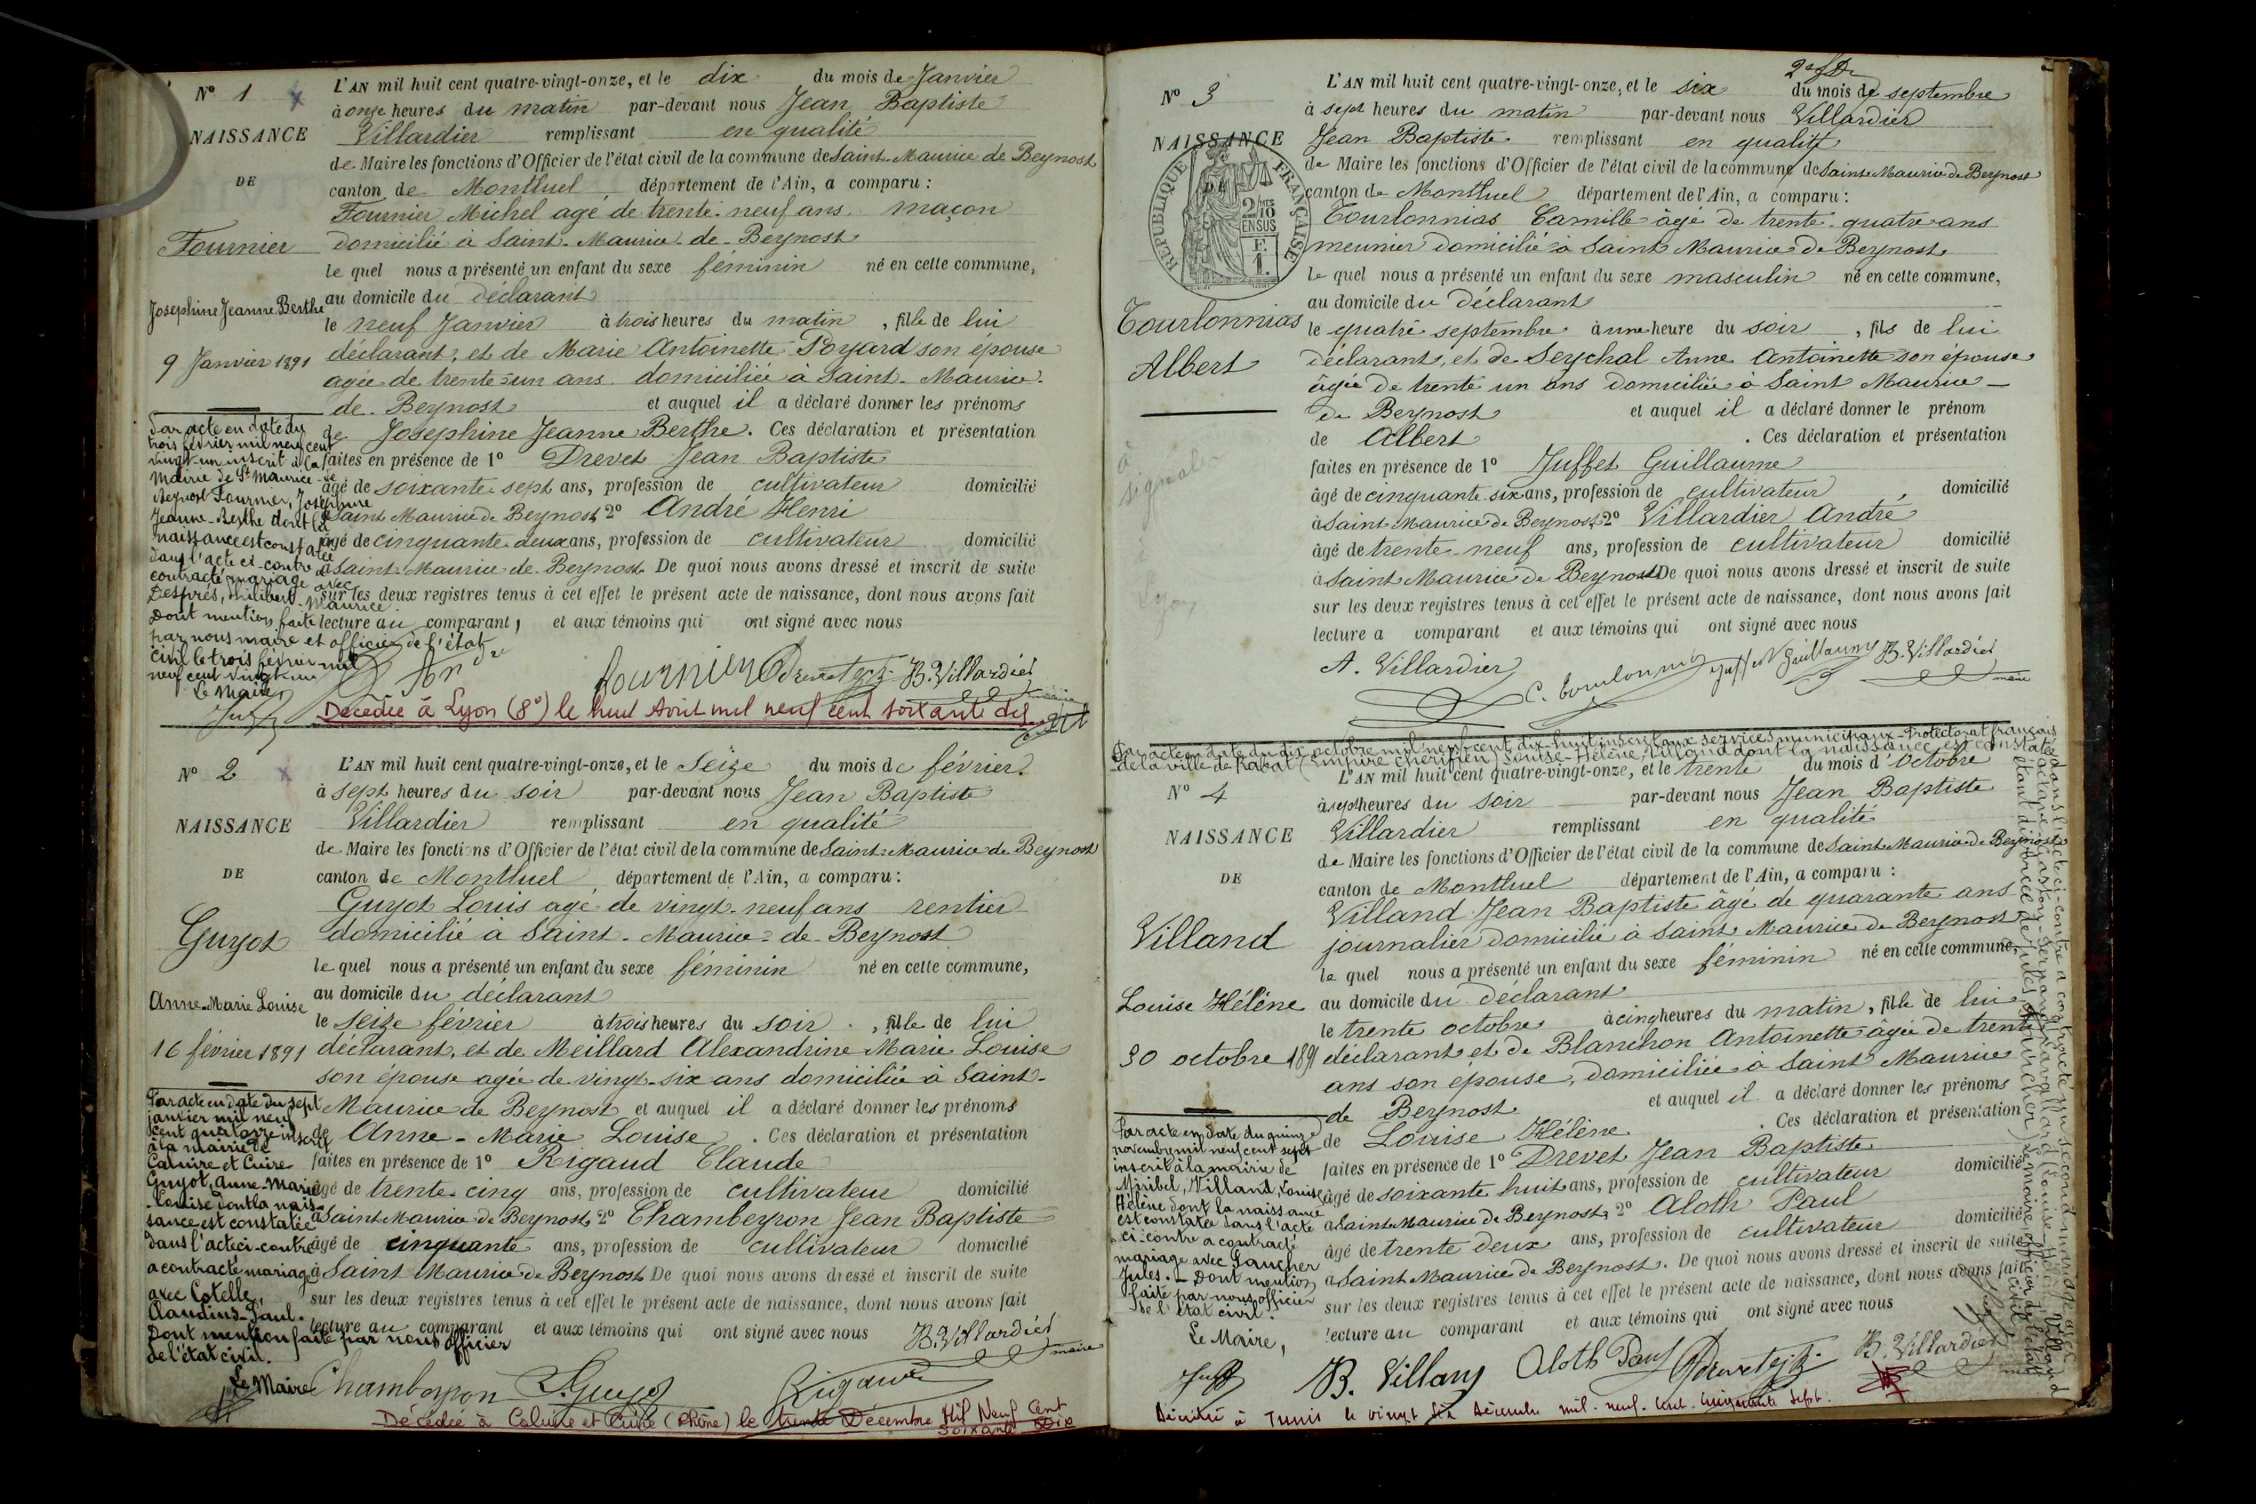 N° 1
NAISSANCE
DE
Fournier
Josephine Jeanne Berthe
9 Janvier 1891
Par acte en date du
trois février mil neuf cent
vingt-un inscrit à la
Mairie de St Maurice-de
Beynost Fournier, Joséphine
Jeanne-Berthe dont la
naissance est constatée
dans l'acte ci-contre a
contracté mariage avec
Després, Philibert-Maurice.
Dont mention faite
par nous maire et officier de l'état
civil le trois février mil
neuf cent vingt-un
Le Maire,
L'AN mil huit cent quatre-vingt-onze, et le dix du mois de Janvier
à onze heures du matin par-devant nous Jean Baptiste
Villardier remplissant en qualité
de Maire les fonctions d'Officier de l'état civil de la commune de Saint-Maurice de Beynost
canton de Montluel département de l'Ain, a comparu :
Fournier Michel agé de trente-neuf ans maçon
domicilié à Saint-Maurice-de-Beynost
le quel nous a présenté un enfant du sexe féminin né en cette commune,
au domicile du déclarant
le neuf Janvier à trois heures du matin, fille de lui
déclarant, et de Marie Antoinette Poyard son épouse
agée de trente-un ans domiciliée à Saint-Maurice-
de-Beynost et auquel il a déclaré donner les prénoms
de Josephine Jeanne Berthe. Ces déclaration et présentation
faites en présence de 1° Drevet Jean Baptiste
âgé de soixante-sept ans, profession de cultivateur domicilié
à Saint Maurice de Beynost 2° André Henri
âgé de cinquante-deux ans, profession de cultivateur domicilié
à Saint-Maurice-de-Beynost De quoi nous avons dressé et inscrit de suite
sur les deux registres tenus à cet effet le présent acte de naissance, dont nous avons fait
lecture au comparant, et aux témoins qui ont signé avec nous
Fournier Drevet B. Villardier
maire
Décédée à Lyon (8°) le huit Août mil neuf cent soixante dix
N° 2
NAISSANCE
DE
Guyot
Anne-Marie Louise
16 février 1891
Par acte en date du sept
janvier mil neuf
cent quatorze inscrit
à la mairie de
Caluire et Cuire
Guyot, Anne-Marie
-Louise dont la nais-
sance est constatée
dans l'acte ci-contre
a contracté mariage
avec Cotelle,
Claudius-Paul.
Dont mention faite par nous officier
de l'état civil.
Le Maire
L'AN mil huit cent quatre-vingt-onze, et le Seize du mois de février
à sept heures du soir par-devant nous Jean Baptiste
Villardier remplissant en qualité
de Maire les fonctions d'Officier de l'état civil de la commune de Saint-Maurice de Beynost
canton de Montluel département de l'Ain, a comparu :
Guyot Louis agé de vingt-neuf ans rentier
domicilié à Saint-Maurice-de-Beynost
le quel nous a présenté un enfant du sexe féminin né en cette commune,
au domicile du déclarant
le Seize février à trois heures du soir, fille de lui
déclarant, et de Meillard Alexandrine Marie Louise
son épouse agée de vingt-six ans domiciliée à Saint-
Maurice de Beynost et auquel il a déclaré donner les prénoms
de Anne-Marie Louise. Ces déclaration et présentation
faites en présence de 1° Rigaud Claude
âgé de trente-cinq ans, profession de cultivateur domicilié
à Saint Maurice de Beynost 2° Chambeyron Jean Baptiste
âgé de cinquante ans, profession de cultivateur domicilié
à Saint Maurice de Beynost De quoi nous avons dressé et inscrit de suite
sur les deux registres tenus à cet effet le présent acte de naissance, dont nous avons fait
lecture au comparant et aux témoins qui ont signé avec nous B. Villardier
maire
Chambeyron L. Guyot Rigaud
Décédée à Caluire et Cuire (Rhône) le trente Décembre Mil Neuf Cent
Soixante
N° 3
NAISSANCE
DE
RÉPUBLIQUE FRANÇAISE
2/10 EN SUS
Tourlonnias
Albert
à
signaler
à
Lyon
L'AN mil huit cent quatre-vingt-onze, et le six du mois de septembre
à sept heures du matin par-devant nous Villardier
Jean Baptiste remplissant en qualité
de Maire les fonctions d'Officier de l'état civil de la commune de Saint-Maurice de Beynost
canton de Montluel département de l'Ain, a comparu :
Tourlonnias Camille agé de trente-quatre ans
meunier domicilié à Saint Maurice de Beynost
le quel nous a présenté un enfant du sexe masculin né en cette commune,
au domicile du déclarant
le quatre septembre à une heure du soir, fils de lui
déclarant, et de Seychal Anne Antoinette son épouse
âgée de trente un ans domiciliée à Saint Maurice-
de Beynost et auquel il a déclaré donner le prénom
de Albert. Ces déclaration et présentation
faites en présence de 1° Juffet Guillaume
âgé de cinquante-six ans, profession de cultivateur, domicilié
à Saint Maurice de Beynost 2° Villardier André
âgé de trente-neuf ans, profession de cultivateur domicilié
à Saint Maurice de Beynost De quoi nous avons dressé et inscrit de suite
sur les deux registres tenus à cet effet le présent acte de naissance, dont nous avons fait
lecture a comparant et aux témoins qui ont signé avec nous
A. Villardier C. Tourlonnias Juffet Guillaume B. Villardier
maire
Par acte en date du dix octobre mil neuf cent dix-huit inscrit aux services municipaux-Protectorat français
de la ville de Rabat (Empire Chérifien) Louise-Hélène, Villand dont la naissance est constatée
dans l'acte ci-contre a contracté un second mariage avec
N° 4
NAISSANCE
DE
Villand
Louise Hélène
30 octobre 1891
Par acte en date du quinze
novembre mil neuf cent sept
inscrit à la mairie de
Miribel, Villand, Louise
Hélène dont la naissance
est constatée dans l'acte
ci-contre a contracté
mariage avec Saucher
Jules.- Dont mention
faite par nous officier
de l'état civil.
Le Maire,
L'AN mil huit cent quatre-vingt-onze, et le trente du mois d'octobre
à sept heures du soir par-devant nous Jean Baptiste
Villardier remplissant en qualité
de Maire les fonctions d'Officier de l'état civil de la commune de Saint-Maurice de Beynost
canton de Montluel département de l'Ain, a comparu :
Villand Jean Baptiste âgé de quarante ans
journalier domicilié à Saint Maurice de Beynost
le quel nous a présenté un enfant du sexe féminin né en cette commune,
au domicile du déclarant
le trente octobre à cinq heures du matin, fille de lui
déclarant et de Blanchon Antoinette âgée de trente
ans son épouse, domiciliée à Saint Maurice
de Beynost et auquel il a déclaré donner les prénoms
de Louise Hélène. Ces déclaration et présentation
faites en présence de 1° Drevet Jean Baptiste
âgé de soixante huit ans, profession de cultivateur domicilié
à Saint Maurice de Beynost, 2° Aloth Paul
âgé de trente deux ans, profession de cultivateur domicilié
à Saint Maurice de Beynost. De quoi nous avons dressé et inscrit de suite
sur les deux registres tenus à cet effet le présent acte de naissance, dont nous avons fait
lecture au comparant et aux témoins qui ont signé avec nous
B. Villand Aloth Paul Drevet B. Villardier
Décédée à Tunis le vingt six décembre mil-neuf-cent-cinquante sept.